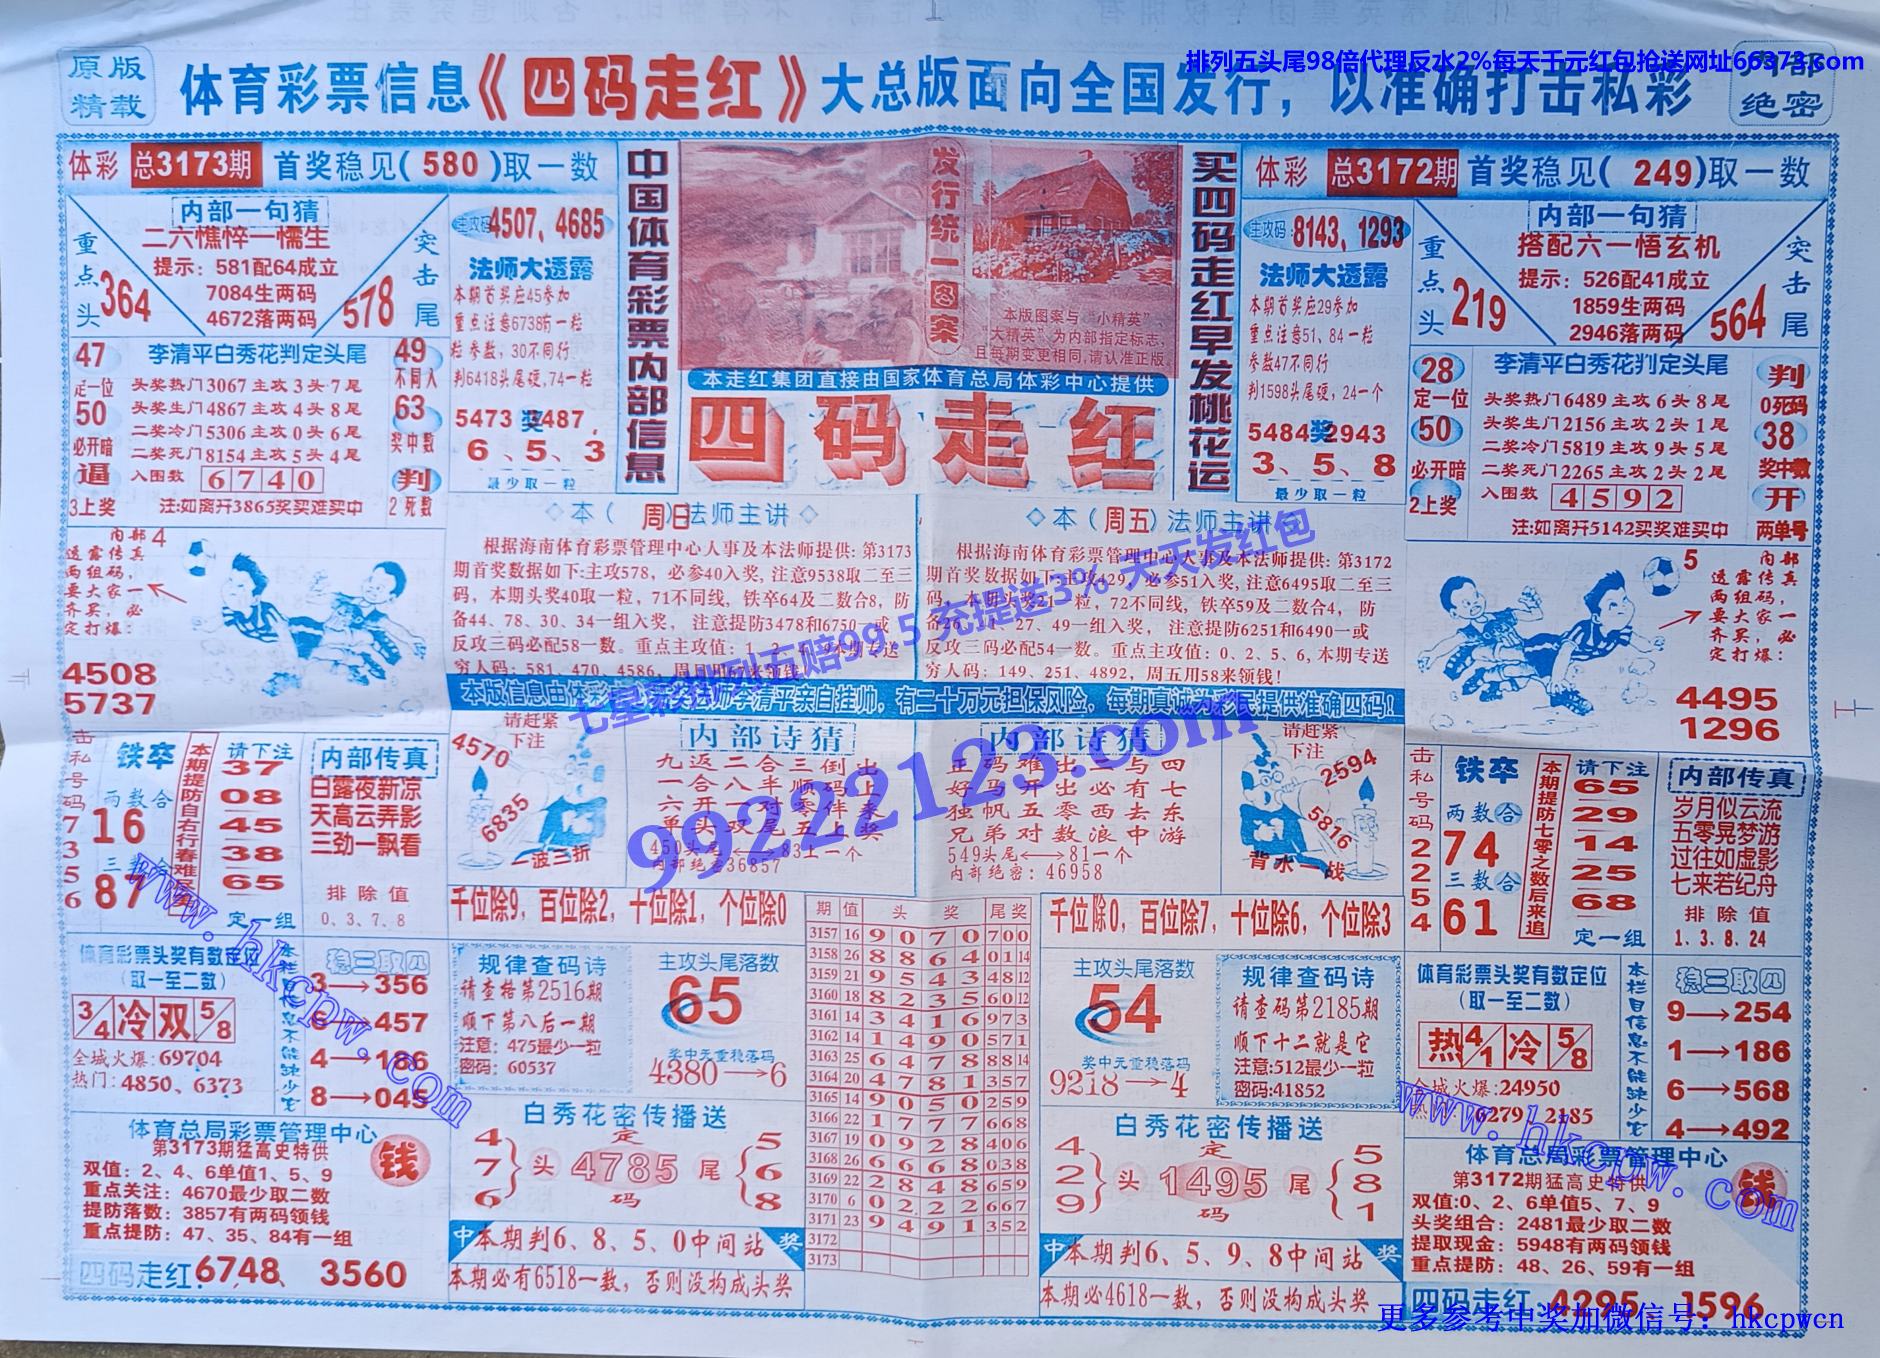 原版
精载
体育彩票信息《四码走红》大总版面向全国发行，以准确打击私彩
绝密
排列五头尾98倍代理反水2%每天千元红包抢送网址66373.com
体彩 总3173期 首奖稳见(580)取一数
内部一句猜
二六憔悴一懦生
提示：581配64成立
7084生两码
4672落两码
重点头
364
突击尾
578
主攻码 4507、4685
法师大透露
本期首奖应45参加
重点注意6738有一粒
参数，30不同行
判6418头尾硬，74一粒
5473 奖 487，
6、5、3
最少取一粒
47
定一位
50
必开暗
逼
3上奖
李清平白秀花判定头尾
头奖热门3067主攻3头7尾
头奖生门4867主攻4头8尾
二奖冷门5306主攻0头6尾
二奖死门8154主攻5头4尾
入围数 6740
注:如离开3865奖买难买中
49
不同人
63
奖中数
判
2死数
中国体育彩票内部信息
发行统一图案
本版图案与“小精英”、
大精英”为内部指定标志，
且每期变更相同，请认准正版
本走红集团直接由国家体育总局体彩中心提供
四码走红
买四码走红早发桃花运
体彩 总3172期 首奖稳见(249)取一数
主攻码 8143、1293
法师大透露
本期首奖应29参加
重点注意51、84一粒
参数47不同行
判1598头尾硬，24一个
5484 奖 2943
3、5、8
最少取一粒
内部一句猜
搭配六一悟玄机
提示：526配41成立
1859生两码
2946落两码
重点头
219
突击尾
564
28
定一位
50
必开暗
2上奖
李清平白秀花判定头尾
头奖热门6489主攻6头8尾
头奖生门2156主攻2头1尾
二奖冷门5819主攻9头5尾
二奖死门2265主攻2头2尾
入围数 4592
注:如离开5142买奖难买中
判
0死码
38
奖中数
开
两单号
内部 4
透露传真
两组码，
要大家一
齐买，必
定打爆：
4508
5737
◇本（周日）法师主讲◇
根据海南体育彩票管理中心人事及本法师提供：第3173
期首奖数据如下:主攻578，必参40入奖，注意9538取二至三
码，本期头奖40取一粒，71不同线，铁卒64及二数合8，防
备44、78、30、34一组入奖，注意提防3478和6750一或
反攻三码必配58一数。重点主攻值：1、2、4、9本期专送
穷人码：581、470、4586，周日用67来领钱！
◇本（周五）法师主讲
根据海南体育彩票管理中心人事及本法师提供：第3172
期首奖数据如下:主攻429，必参51入奖，注意6495取二至三
码，本期头奖21一粒，72不同线，铁卒59及二数合4，防
27、49一组入奖，注意提防6251和6490一或
反攻三码必配54一数。重点主攻值：0、2、5、6，本期专送
穷人码：149、251、4892，周五用58来领钱！
5 内部
透露传真
两组码，
要大家一
齐买，必
定打爆：
4495
1296
李清平亲自挂帅，有二十万元担保风险，每期真诚为彩民提供准确四码！
七星彩排列五赔99.5 充提送3% 天天发红包
99222123.com
击私号码7356
铁卒
两数合
16
三数
87
请下注
37
08
45
38
65
定一组
内部传真
白露夜新凉
天高云弄影
三劲一飘看
排除值
0、3、7、8
4570
请赶紧
下注
6835
一波三折
内部诗猜
九返二合三倒出
一合八半顺码上
六开一对零伴来
单头双尾五上奖
450头尾⟷83上一个
内部绝密36857
内部诗猜
正码难出二与四
好马开出必有七
独帆五零西去东
兄弟对数浪中游
549头尾⟷81一个
内部绝密：46958
请赶紧
下注
2594
5816
背水一战
击私号码2254
铁卒
两数合
74
三数合
61
本期提防七零之数后来追
请下注
65
29
14
25
68
定一组
内部传真
岁月似云流
五零晃梦游
过往如虚影
七来若纪舟
排除值
1、3、8、24
千位除9，百位除2，十位除1，个位除0
千位除0，百位除7，十位除6，个位除3
期 值 头奖 尾奖
3157 16 9070 700
3158 26 8864 0114
3159 21 9543 4812
3160 18 8235 6012
3161 14 3416 973
3162 14 1490 571
3163 25 6478 8814
3164 20 4781 357
3165 14 9050 259
3166 22 1777 668
3167 19 0928 406
3168 26 6668 038
3169 22 2848 659
3170 6 0222 667
3171 23 9491 352
3172
3173
体育彩票头奖有数定位
（取一至二数）
3/4 冷 双 5/8
全城火爆：69704
热门：4850、6373
稳三取四
3→356
6→457
4→186
8→045
规律查码诗
请查格第2516期
顺下第八后一期
注意：475最少一粒
密码：60537
主攻头尾落数
65
奖中元重稳落码
4380→6
主攻头尾落数
54
奖中元重稳落码
9218→4
规律查码诗
请查码第2185期
顺下十二就是它
注意:512最少一粒
密码:41852
体育彩票头奖有数定位
（取一至二数）
热 4/1 冷 5/8
全城火爆:24950
6279、2185
本栏目信息不能缺少它
稳三取四
9→254
1→186
6→568
4→492
体育总局彩票管理中心
第3173期猛高史特供
双值：2、4、6单值1、5、9
重点关注：4670最少取二数
提防落数：3857有两码领钱
重点提防：47、35、84有一组
钱
四码走红：6748、3560
白秀花密传播送
4
7
6
头
定
4785
码
尾
5
6
8
中 本期判6、8、5、0中间站 奖
本期必有6518一数，否则没构成头奖
白秀花密传播送
4
2
9
头
定
1495
码
尾
5
8
1
中 本期判6、5、9、8中间站 奖
本期必4618一数，否则没构成头奖
体育总局彩票管理中心
第3172期猛高史特供
双值:0、2、6单值5、7、9
头奖组合：2481最少取二数
提取现金：5948有两码领钱
重点提防：48、26、59有一组
钱
四码走红 4295、1596
www.hkcpw.com
www.hkcpw.com
更多参考中奖加微信号：hkcpwcn